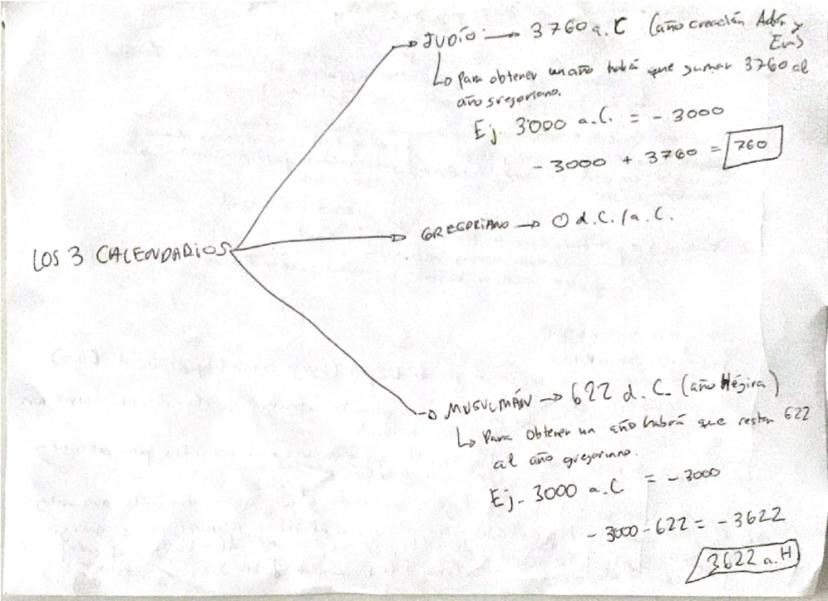 LOS 3 CALENDARIOS
JUDÍO → 3760 a.C (año creación Adán y
Eva)
↳ Para obtener un año habrá que sumar 3760 al
año gregoriano.
Ej. 3000 a.C. = - 3000
- 3000 + 3760 = 760
GREGORIANO → 0 d.C. / a.C.
MUSULMÁN → 622 d.C. (año Hégira)
↳ Para obtener un año habrá que restar 622
al año gregoriano.
Ej. 3000 a.C = - 3000
- 3000 - 622 = - 3622
3622 a.H